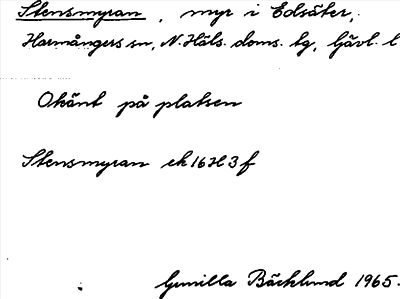 Stensmyran, myr i Edsäter,
Harmångers sn, N. Häls. doms. tg, Gävl. l
Okänt på platsen
Stensmyran ek 16H3f
Gunilla Bäcklund 1965.